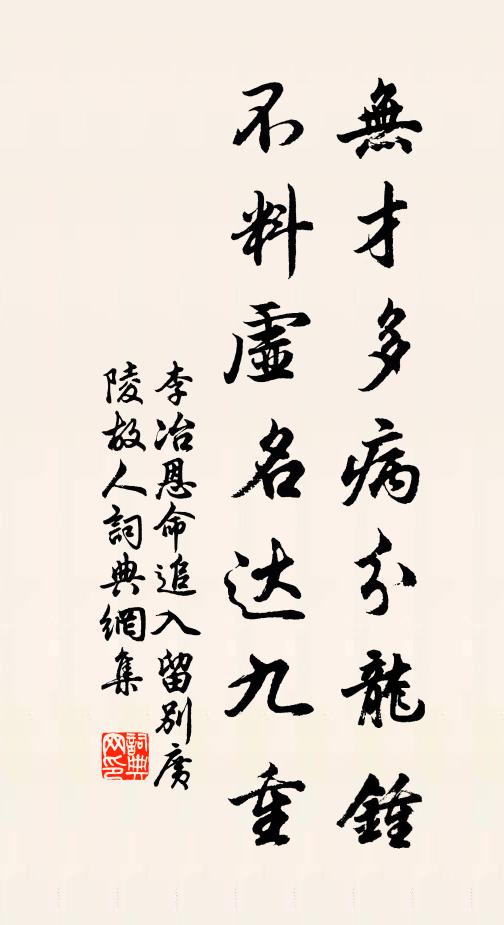 無才多病分龍鍾
不料虛名达九重
李冶恩命追入留別廣
陵故人詞典網集
詞典
网印